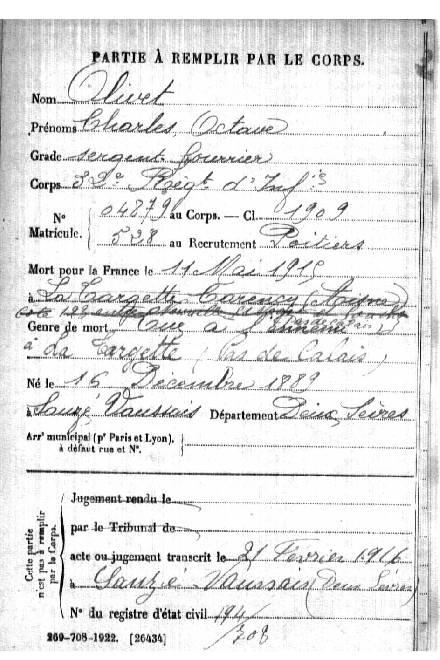 PARTIE À REMPLIR PAR LE CORPS.
Nom Olivet
Prénoms Charles, Octave
Grade sergent fourrier
Corps 32e Régt d'Infie
N° Matricule. 04879 au Corps. — Cl. 1909
538 au Recrutement Poitiers
Mort pour la France le 11 Mai 1915
à La Targette Carency (Aisne)
Cote 123
Genre de mort Tué à l'Ennemi
à La Targette (Pas de Calais)
Né le 16 Décembre 1889
à Sauzé Vaussais Département Deux Sèvres
Arrt municipal (pr Paris et Lyon),
à défaut rue et N°.
Cette partie n'est pas à remplir par le Corps.
Jugement rendu le
par le Tribunal de
acte ou jugement transcrit le 21 Février 1916
à Sauzé Vaussais (Deux Sèvres)
N° du registre d'état civil 194/
708
269-708-1922. [26434]